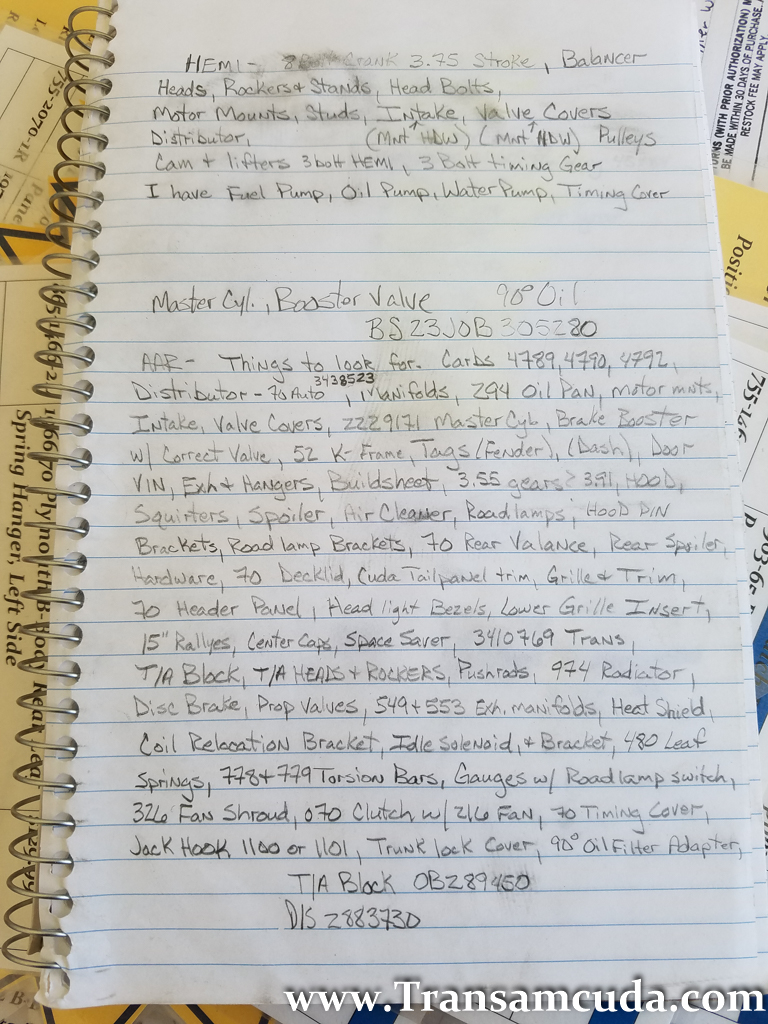 HEMI - 8 Bolt Crank 3.75 Stroke, Balancer
Heads, Rockers + Stands, Head Bolts,
Motor Mounts, Studs, Intake, Valve Covers
Distributor, (Mnt HDW) (Mnt HDW) Pulleys
Cam + lifters 3 bolt HEMI, 3 Bolt timing Gear
I have Fuel Pump, Oil Pump, Water Pump, Timing Cover
Master Cyl., Booster Valve 90° Oil
BS23J0B305280
AAR - Things to look for. Carbs 4789, 4790, 4792,
Distributor - 70 Auto 3438523, Manifolds, 294 Oil Pan, motor mnts,
Intake, Valve Covers, 2229171 Master Cyl, Brake Booster
w/ Correct Valve, 52 K-Frame, Tags (Fender), (Dash), Door
VIN, Exh + Hangers, Buildsheet, 3.55 gears? 3.91, HOOD,
Squirters, Spoiler, Air Cleaner, Road lamps, HOOD PIN
Brackets, Road lamp Brackets, 70 Rear Valance, Rear Spoiler,
Hardware, 70 Decklid, Cuda Tailpanel trim, Grille + Trim,
70 Header Panel, Head light Bezels, Lower Grille Insert,
15" Rallyes, Center Caps, Space Saver, 3410769 Trans,
T/A Block, T/A HEADS + ROCKERS, Pushrods, 974 Radiator,
Disc Brake, Prop Valves, 549 + 553 Exh. manifolds, Heat Shield,
Coil Relocation Bracket, Idle Solenoid, + Bracket, 480 Leaf
Springs, 778 + 779 Torsion Bars, Gauges w/ Road lamp switch,
326 Fan Shroud, 070 Clutch w/ 216 Fan, 70 Timing Cover,
Jack Hook 1100 or 1101, Trunk lock Cover, 90° Oil Filter Adapter,
T/A Block 0B289450
D/S 2883730
755-2070-LR
Spring Hanger, Left Side
(WITH PRIOR AUTHORIZATION)
BE MADE WITHIN 30 DAYS OF PURCHASE.
RESTOCK FEE MAY APPLY
755-146
www.Transamcuda.com